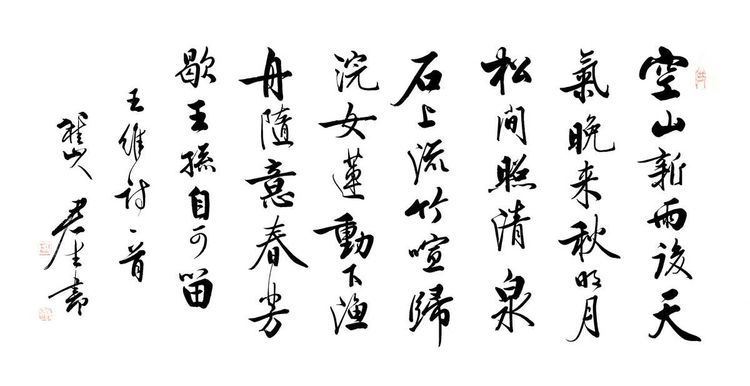 空山新雨後天
氣晚来秋明月
松間照清泉
石上流竹喧歸
浣女蓮動下漁
舟隨意春芳
歇王孫自可留
王維詩一首
書